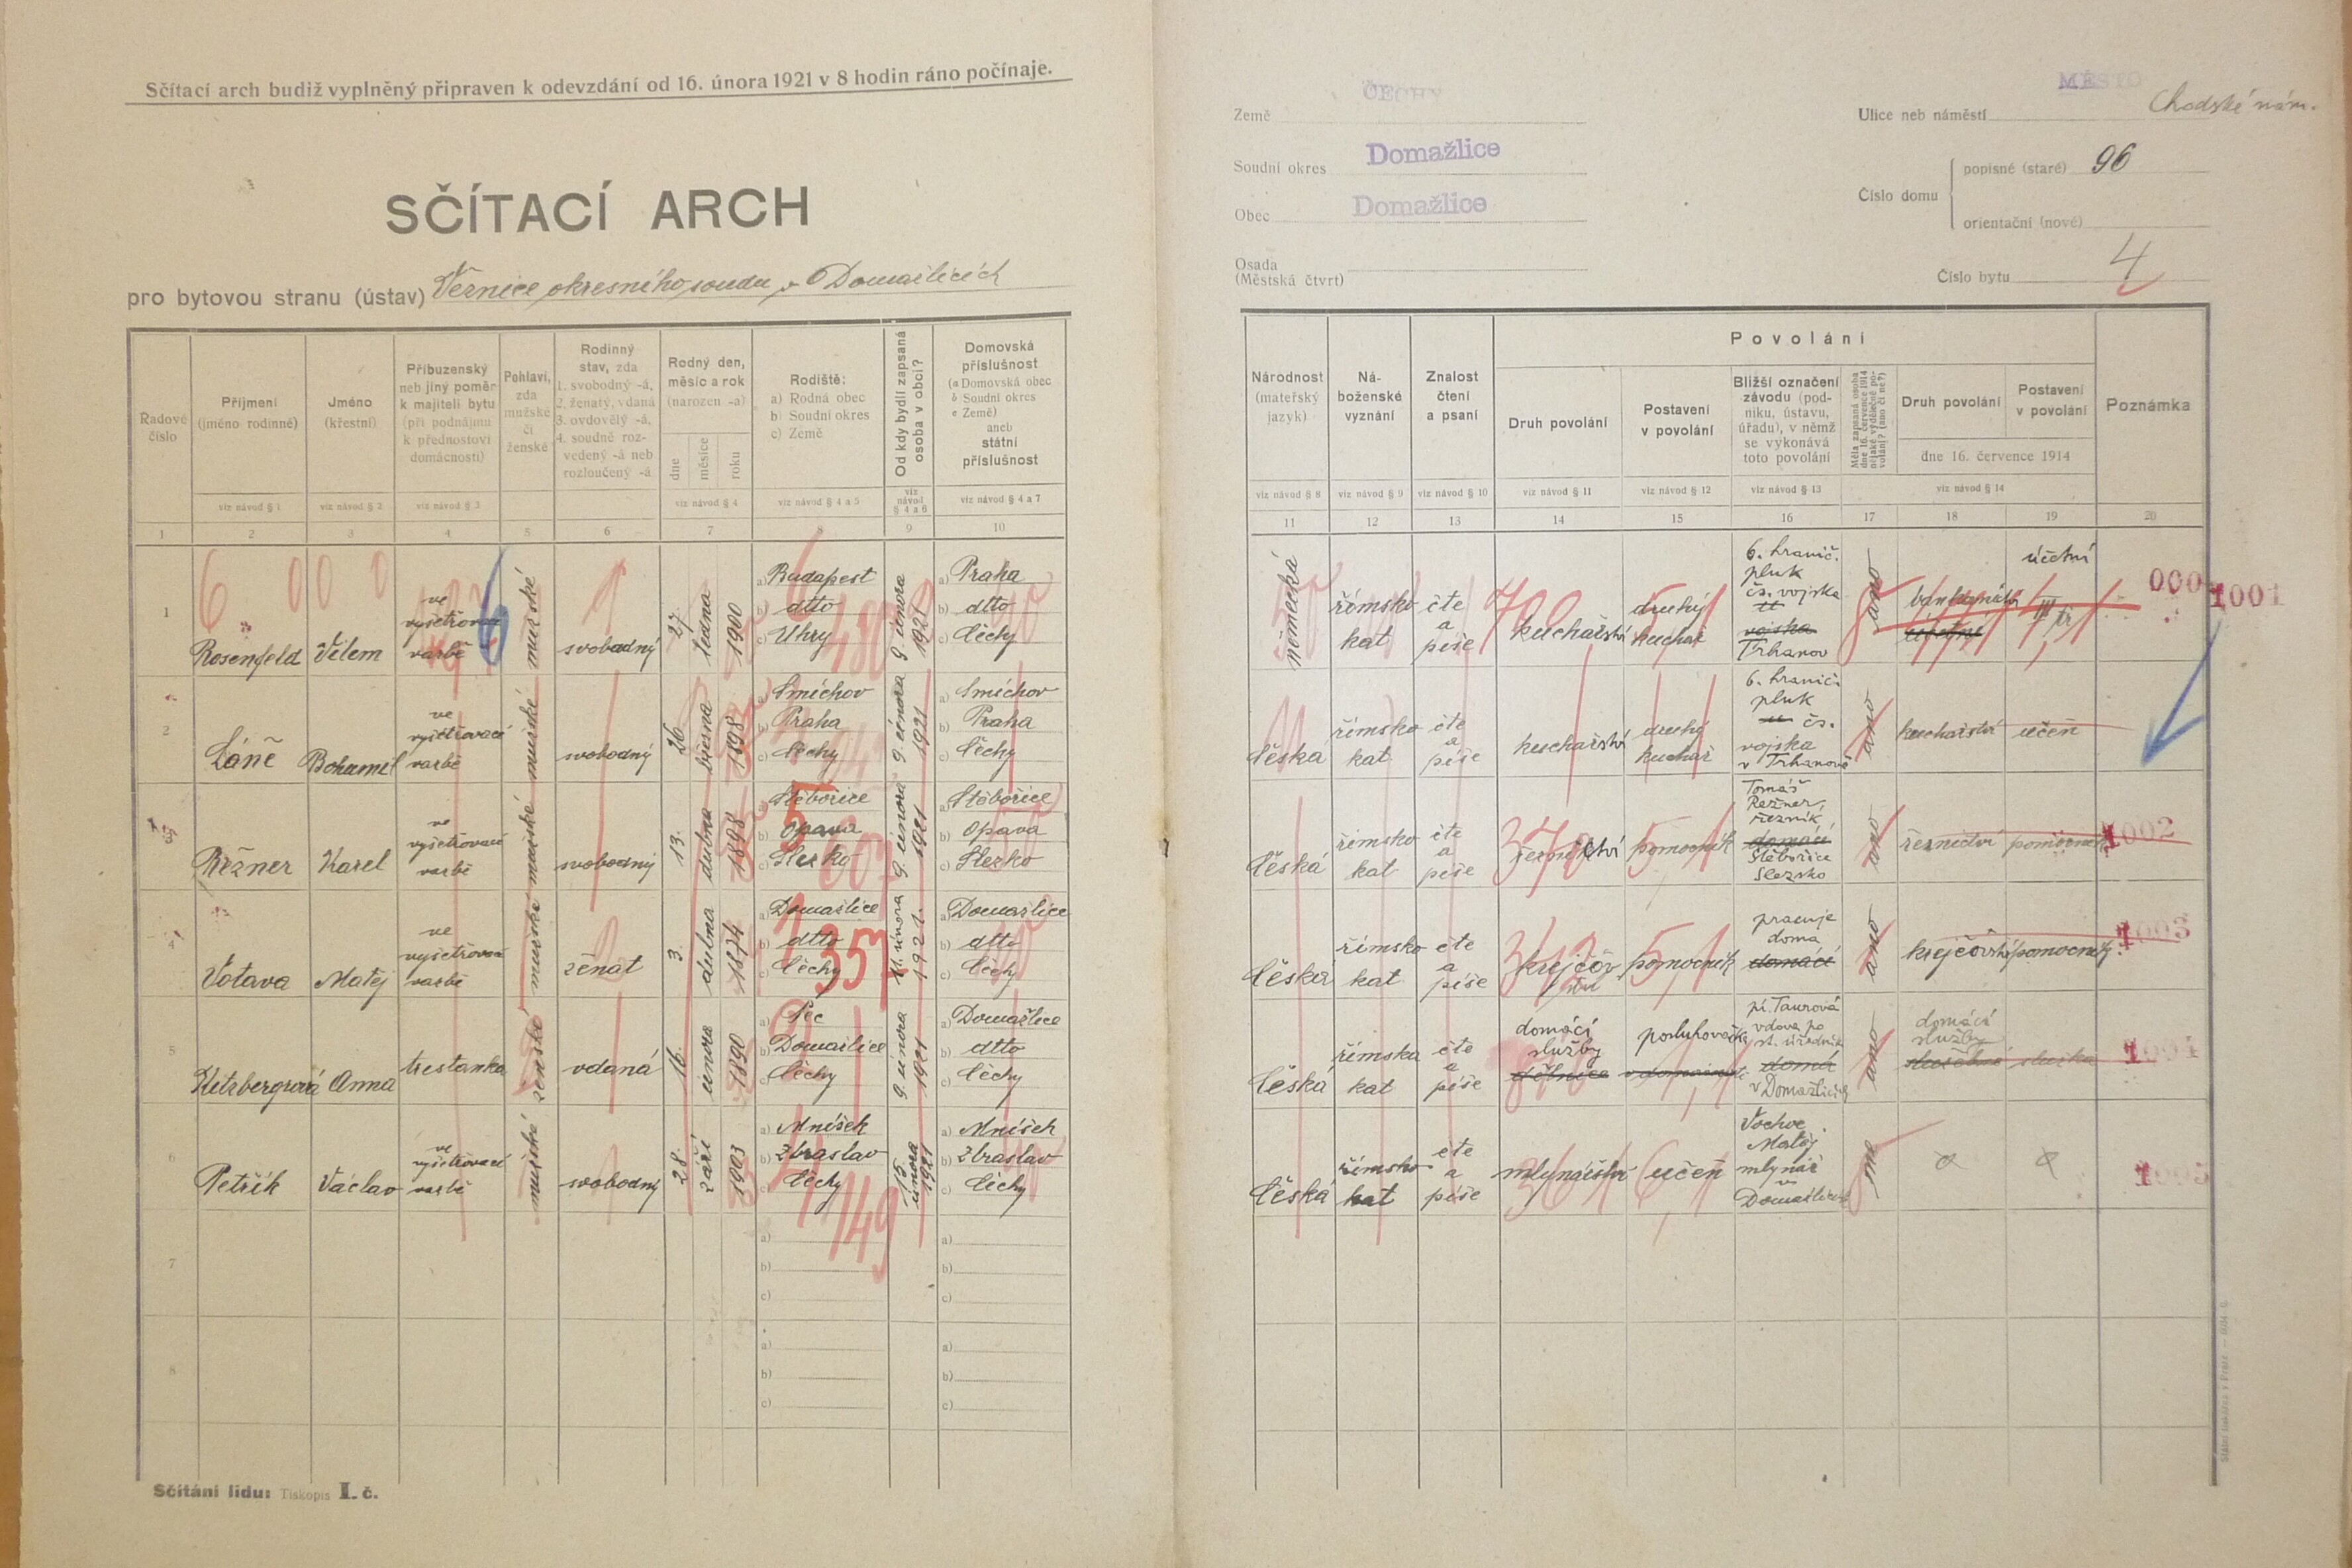 Sčítací arch budiž vyplněný připraven k odevzdání od 16. února 1921 v 8 hodin ráno počínaje.
SČÍTACÍ ARCH
pro bytovou stranu (ústav) Věznice okresního soudu v Domažlicích
ČECHY
Země
Soudní okres Domažlice
Obec Domažlice
Osada
(Městská čtvrť)
MĚSTO
Ulice neb náměstí Chodské nám.
Číslo domu
popisné (staré) 96
orientační (nové)
Číslo bytu 4
Řadové číslo
Příjmení
(jméno rodinné)
Jméno
(křestní)
Příbuzenský
neb jiný poměr
k majiteli bytu
(při podnájmu
k přednostovi
domácnosti)
Pohlaví,
zda
mužské
či
ženské
Rodinný
stav, zda
1. svobodný -á,
2. ženatý, vdaná
3. ovdovělý -á,
4. soudně roz-
vedený -á neb
rozloučený -á
Rodný den,
měsíc a rok
(narozen -a)
dne
měsíce
roku
Rodiště:
a) Rodná obec
b) Soudní okres
c) Země
Od kdy bydlí zapsaná
osoba v obci?
Domovská
příslušnost
(a Domovská obec
b Soudní okres
c Země)
aneb
státní
příslušnost
viz návod § 1
viz návod § 2
viz návod § 3
viz návod § 4
viz návod § 4 a 5
viz návod § 4 a 6
viz návod § 4 a 7
1 2 3 4 5 6 7 8 9 10
Národnost
(mateřský
jazyk)
Ná-
boženské
vyznání
Znalost
čtení
a psaní
Povolání
Druh povolání
Postavení
v povolání
Bližší označení
závodu (pod-
niku, ústavu,
úřadu), v němž
se vykonává
toto povolání
Měla zapsaná osoba
dne 16. července 1914
nějaké výdělečné po-
volání? (ano či ne?)
Druh povolání
Postavení
v povolání
dne 16. července 1914
Poznámka
viz návod § 8
viz návod § 9
viz návod § 10
viz návod § 11
viz návod § 12
viz návod § 13
viz návod § 14
11 12 13 14 15 16 17 18 19 20
1 Rosenfeld Vilém ve vyšetřovací vazbě mužské svobodný 27 ledna 1900
a) Budapest
b) dtto
c) Uhry
9 února 1921
a) Praha
b) dtto
c) Čechy
německá římsko kat čte a píše kuchařství druhý kuchař
6. hranič.
pluk
čs. vojska
vojska
Trhanov
ano účetní III tř. 1001
2 Láně Bohumil ve vyšetřovací vazbě mužské svobodný 26 března 1898
a) Smíchov
b) Praha
c) Čechy
9. února 1921
a) Smíchov
b) Praha
c) Čechy
Česká římsko kat čte a píše kuchařství druhý kuchař
6. hranič.
pluk
čs.
vojska
v Trhanově
ano kuchařství učeň
3 Režner Karel ve vyšetřovací vazbě mužské svobodný 13. dubna 1898
a) Stěbořice
b) Opava
c) Slezko
9 února 1921
a) Stěbořice
b) Opava
c) Slezko
Česká římsko kat čte a píše řeznictví pomocník
Tomáš
Režner,
řezník
domácí
Stěbořice
Slezsko
ano řeznictví pomocník 1002
4 Votava Matěj ve vyšetřovací vazbě mužské ženat 3. dubna 1874
a) Domažlice
b) dtto
c) Čechy
11. února 1921.
a) Domažlice
b) dtto
c) Čechy
Česká římsko kat čte a píše pomocník
pracuje
doma
domácí
ano krejčovství pomocník 1003
5 Anna trestanka ženské vdaná 16. února 1890
a) Pec
b) Domažlice
c) Čechy
9 února 1921
a) Domažlice
b) dtto
c) Čechy
Česká římská kat čte a píše
domácí
služby
dělnice
posluhovačka
pí. Taurová
vdova po
st. úředník
v Domažlicích
ano
domácí
služby
služka
1004
6 Petřík Václav ve vyšetřovací vazbě mužské svobodný 28. září 1903
a) Mníšek
b) Zbraslav
c) Čechy
15. února 1921
a) Mníšek
b) Zbraslav
c) Čechy
Česká římsko kat čte a píše mlynářství učeň
Matěj
mlynář
v
Domažlicích
ne 1005
7
a)
b)
c)
a)
b)
c)
8
a)
b)
c)
a)
b)
c)
Sčítání lidu: Tiskopis I. č.